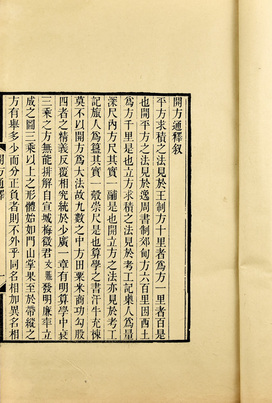 開方通釋叙
平方求積之法見於王制方十里者爲方一里者百是
也開平方之法見於逸周書制郊甸方六百里因西土
爲方千里是也立方求積之法見於考工記㮚人爲量
深尺内方尺其實一鬴是也開立方之法亦見於考工
記旅人爲簋其實一觳崇尺是也算學之書汗牛充棟
莫不以開方爲大法故九數之中方田粟米商功勾股
四者之精義反覆相究統於少廣一章有明算學中衰
三乘之方無能排解自宣城梅徵君文鼎發明廉率立
成之圖三乘以上之形體始如門山掌果至於帶縱之
方有舉多少而分正負者則不外乎同名相加異名相
開方通釋
一